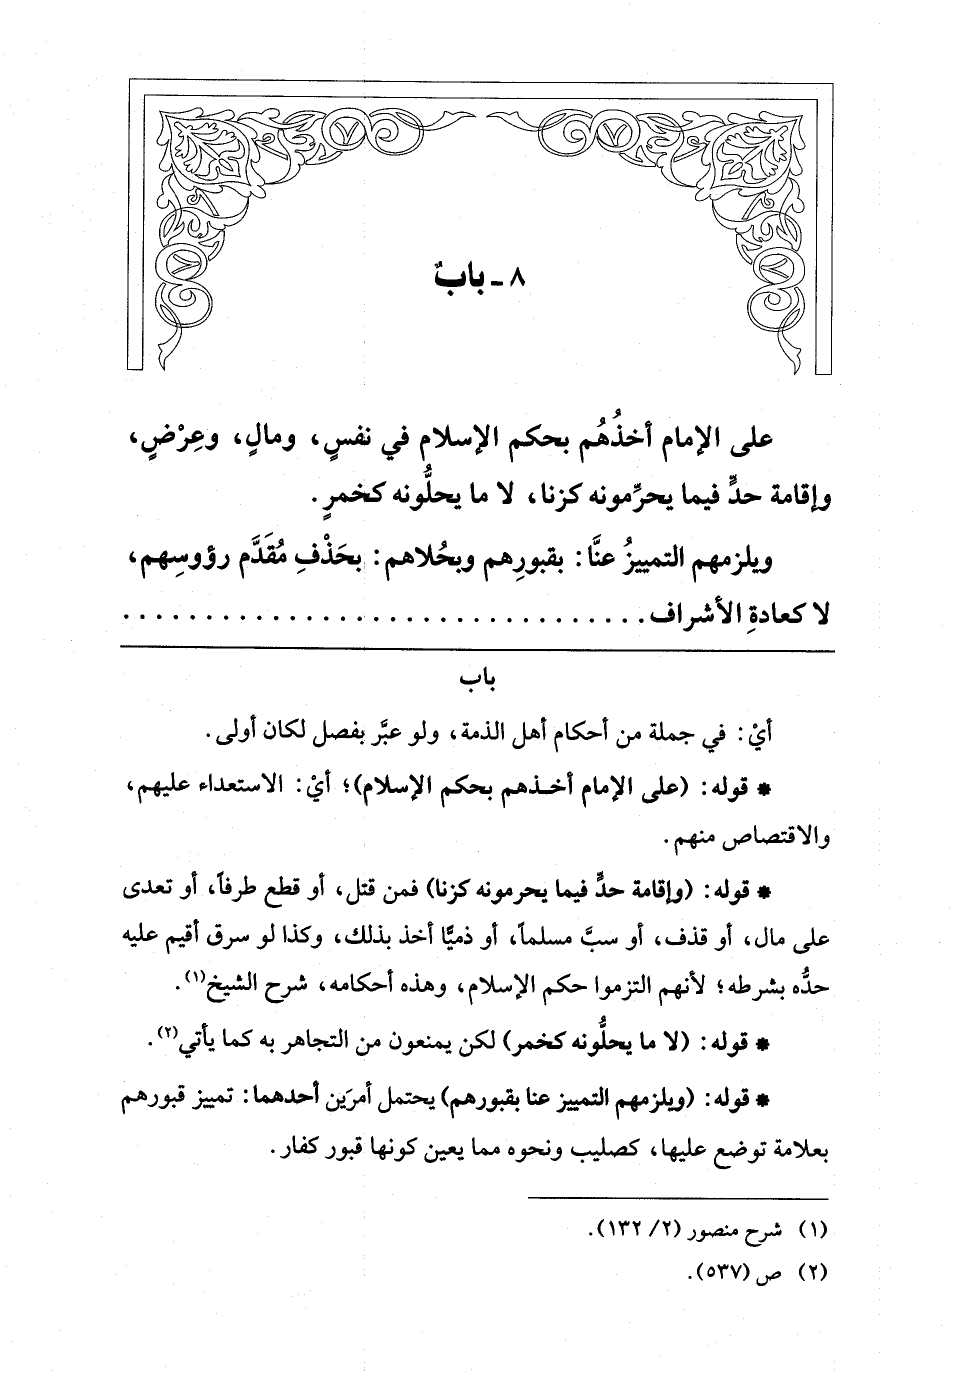 ٨ ـ بابٌ
على الإمام أخذُهُم بحكم الإسلام في نفسٍ، ومالٍ، وعِرْضٍ،
وإقامة حدٍّ فيما يحرِّمونه كزنا، لا ما يحلُّونه كخمرٍ.
ويلزمهم التمييزُ عنَّا: بقبورِهم وبحُلاهم: بحَذْفِ مُقَدَّم رؤوسِهم،
لا كعادةِ الأشراف. . . . . . . . . . . . . . . . . . . . . . . . . . . . . . .
باب
أيْ: في جملة من أحكام أهل الذمة، ولو عبَّر بفصل لكان أولى.
* قوله: (على الإمام أخذهم بحكم الإسلام)؛ أيْ: الاستعداء عليهم،
والاقتصاص منهم.
* قوله: (وإقامة حدٍّ فيما يحرمونه كزنا) فمن قتل، أو قطع طرفاً، أو تعدى
على مال، أو قذف، أو سبَّ مسلماً، أو ذميًّا أخذ بذلك، وكذا لو سرق أقيم عليه
حدُّه بشرطه؛ لأنهم التزموا حكم الإسلام، وهذه أحكامه، شرح الشيخ(١).
* قوله: (لا ما يحلُّونه كخمر) لكن يمنعون من التجاهر به كما يأتي(٢).
* قوله: (ويلزمهم التمييز عنا بقبورهم) يحتمل أمرَين أحدهما: تمييز قبورهم
بعلامة توضع عليها، كصليب ونحوه مما يعين كونها قبور كفار.
(١) شرح منصور (٢/ ١٣٢).
(٢) ص (٥٣٧).